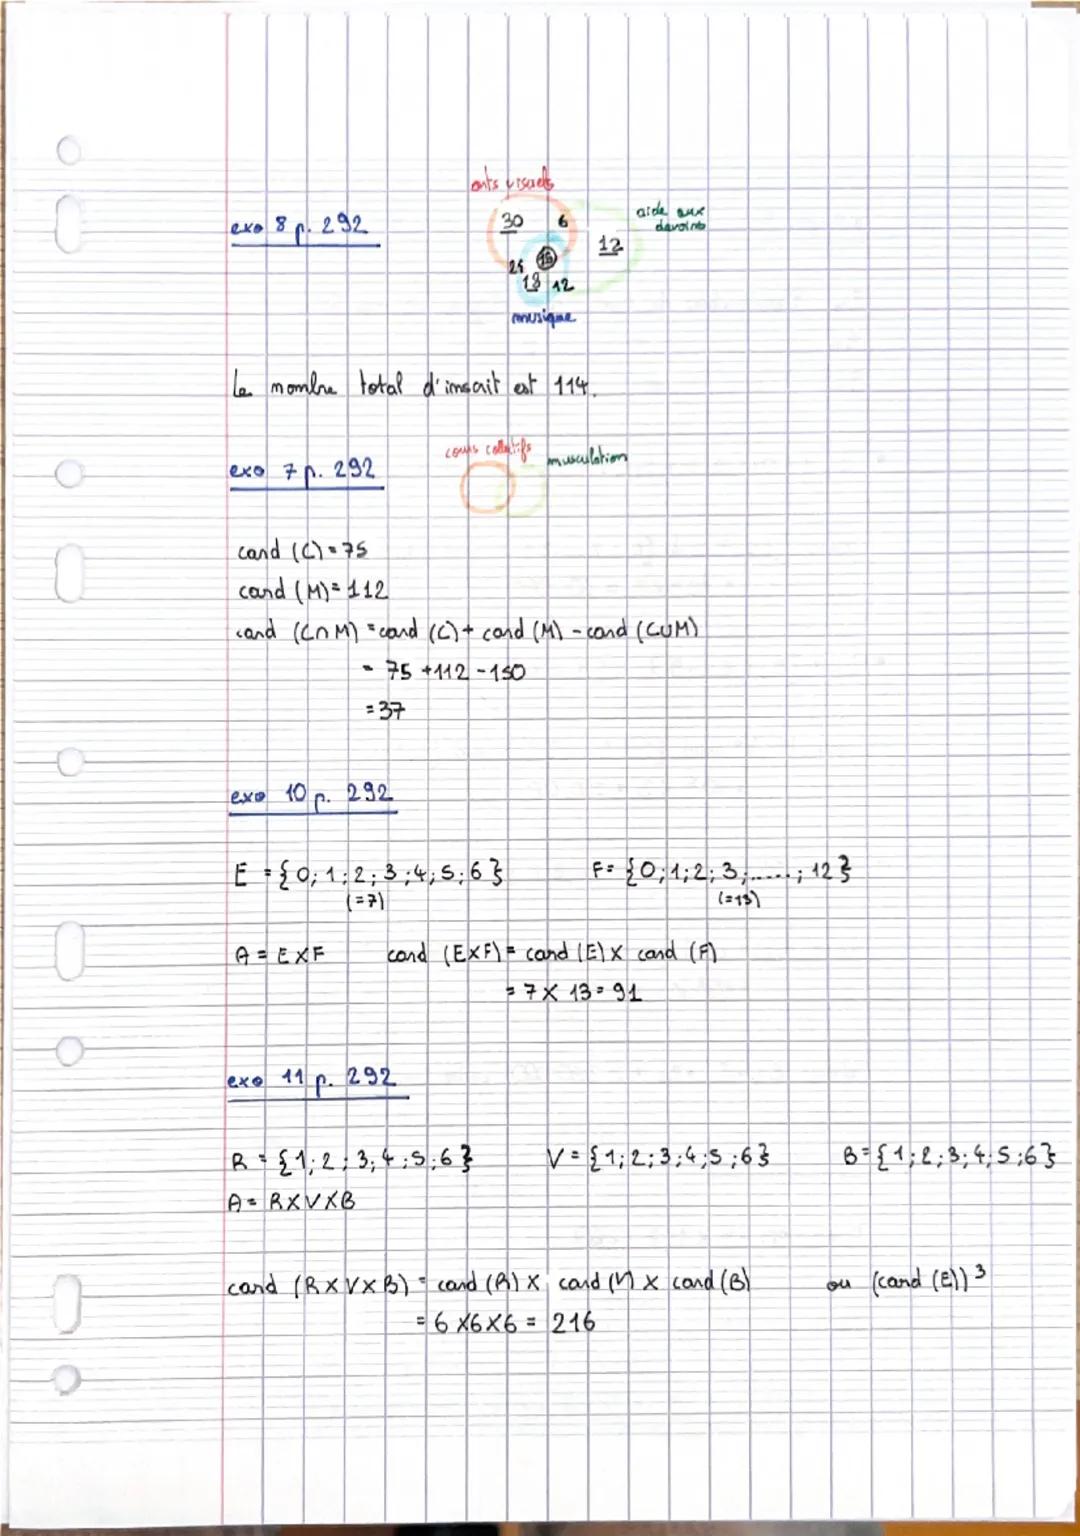 arts visuels
exo 8 p. 292
30 6
aide aux
devoirs
12
25
18 12
musique
Le nombre total d'inscrit est 114.
cours collectifs
musculation
exo 7 p. 292
card (C) = 75
card (M) = 112
card (C∩M) = card (C) + card (M) - card (C∪M)
= 75 + 112 - 150
= 37
exo 10 p. 292
E = {0; 1; 2; 3; 4; 5; 6} F = {0; 1; 2; 3; .....; 12}
(=7) (=13)
A = E×F card (E×F) = card (E) × card (F)
= 7 × 13 = 91
exo 11 p. 292
R = {1; 2; 3; 4; 5; 6} V = {1; 2; 3; 4; 5; 6} B = {1; 2; 3; 4; 5; 6}
A = R×V×B
card (R×V×B) = card (R) × card (V) × card (B) ou (card (E))³
= 6×6×6 = 216